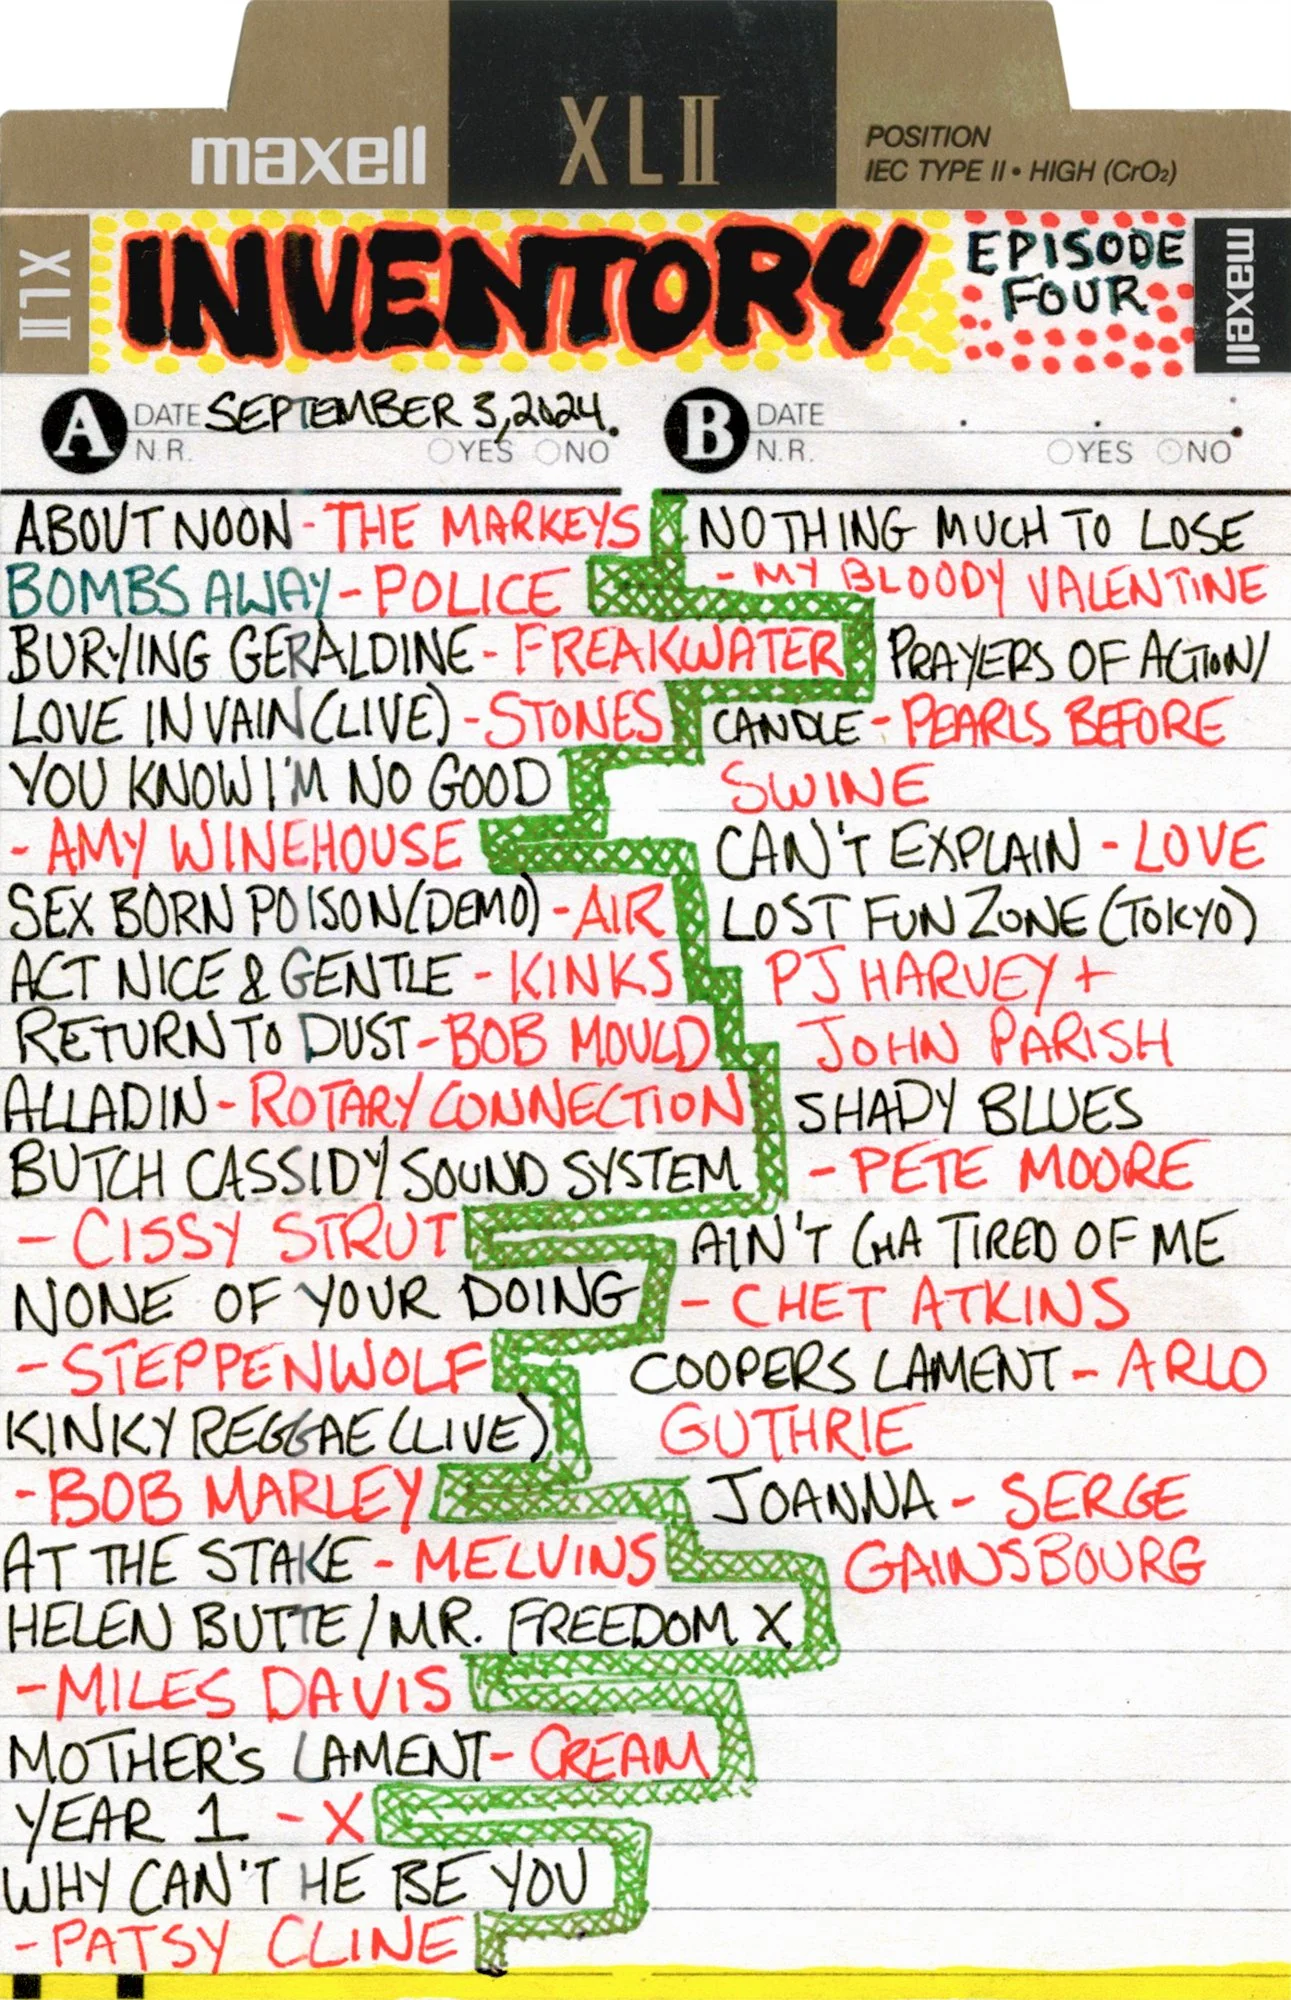 maxell
XLII
POSITION
IEC TYPE II • HIGH (CrO₂)
XLII
INVENTORY
EPISODE
FOUR
maxell
A
DATE SEPTEMBER 3, 2024.
N.R. YES NO
B
DATE
N.R. YES NO
ABOUT NOON - THE MARKEYS
BOMBS AWAY - POLICE
BURYING GERALDINE - FREAKWATER
LOVE IN VAIN (LIVE) - STONES
YOU KNOW I'M NO GOOD
- AMY WINEHOUSE
SEX BORN POISON (DEMO) - AIR
ACT NICE & GENTLE - KINKS
RETURN TO DUST - BOB MOULD
ALLADIN - ROTARY CONNECTION
BUTCH CASSIDY SOUND SYSTEM
- CISSY STRUT
NONE OF YOUR DOING
- STEPPENWOLF
KINKY REGGAE (LIVE)
- BOB MARLEY
AT THE STAKE - MELVINS
HELEN BUTTE / MR. FREEDOM X
- MILES DAVIS
MOTHER'S LAMENT - CREAM
YEAR 1 - X
WHY CAN'T HE BE YOU
- PATSY CLINE
NOTHING MUCH TO LOSE
- MY BLOODY VALENTINE
PRAYERS OF ACTION/
CANDLE - PEARLS BEFORE
SWINE
CAN'T EXPLAIN - LOVE
LOST FUN ZONE (TOKYO)
PJ HARVEY +
JOHN PARISH
SHADY BLUES
- PETE MOORE
AIN'T CHA TIRED OF ME
- CHET ATKINS
COOPERS LAMENT - ARLO
GUTHRIE
JOANNA - SERGE
GAINSBOURG